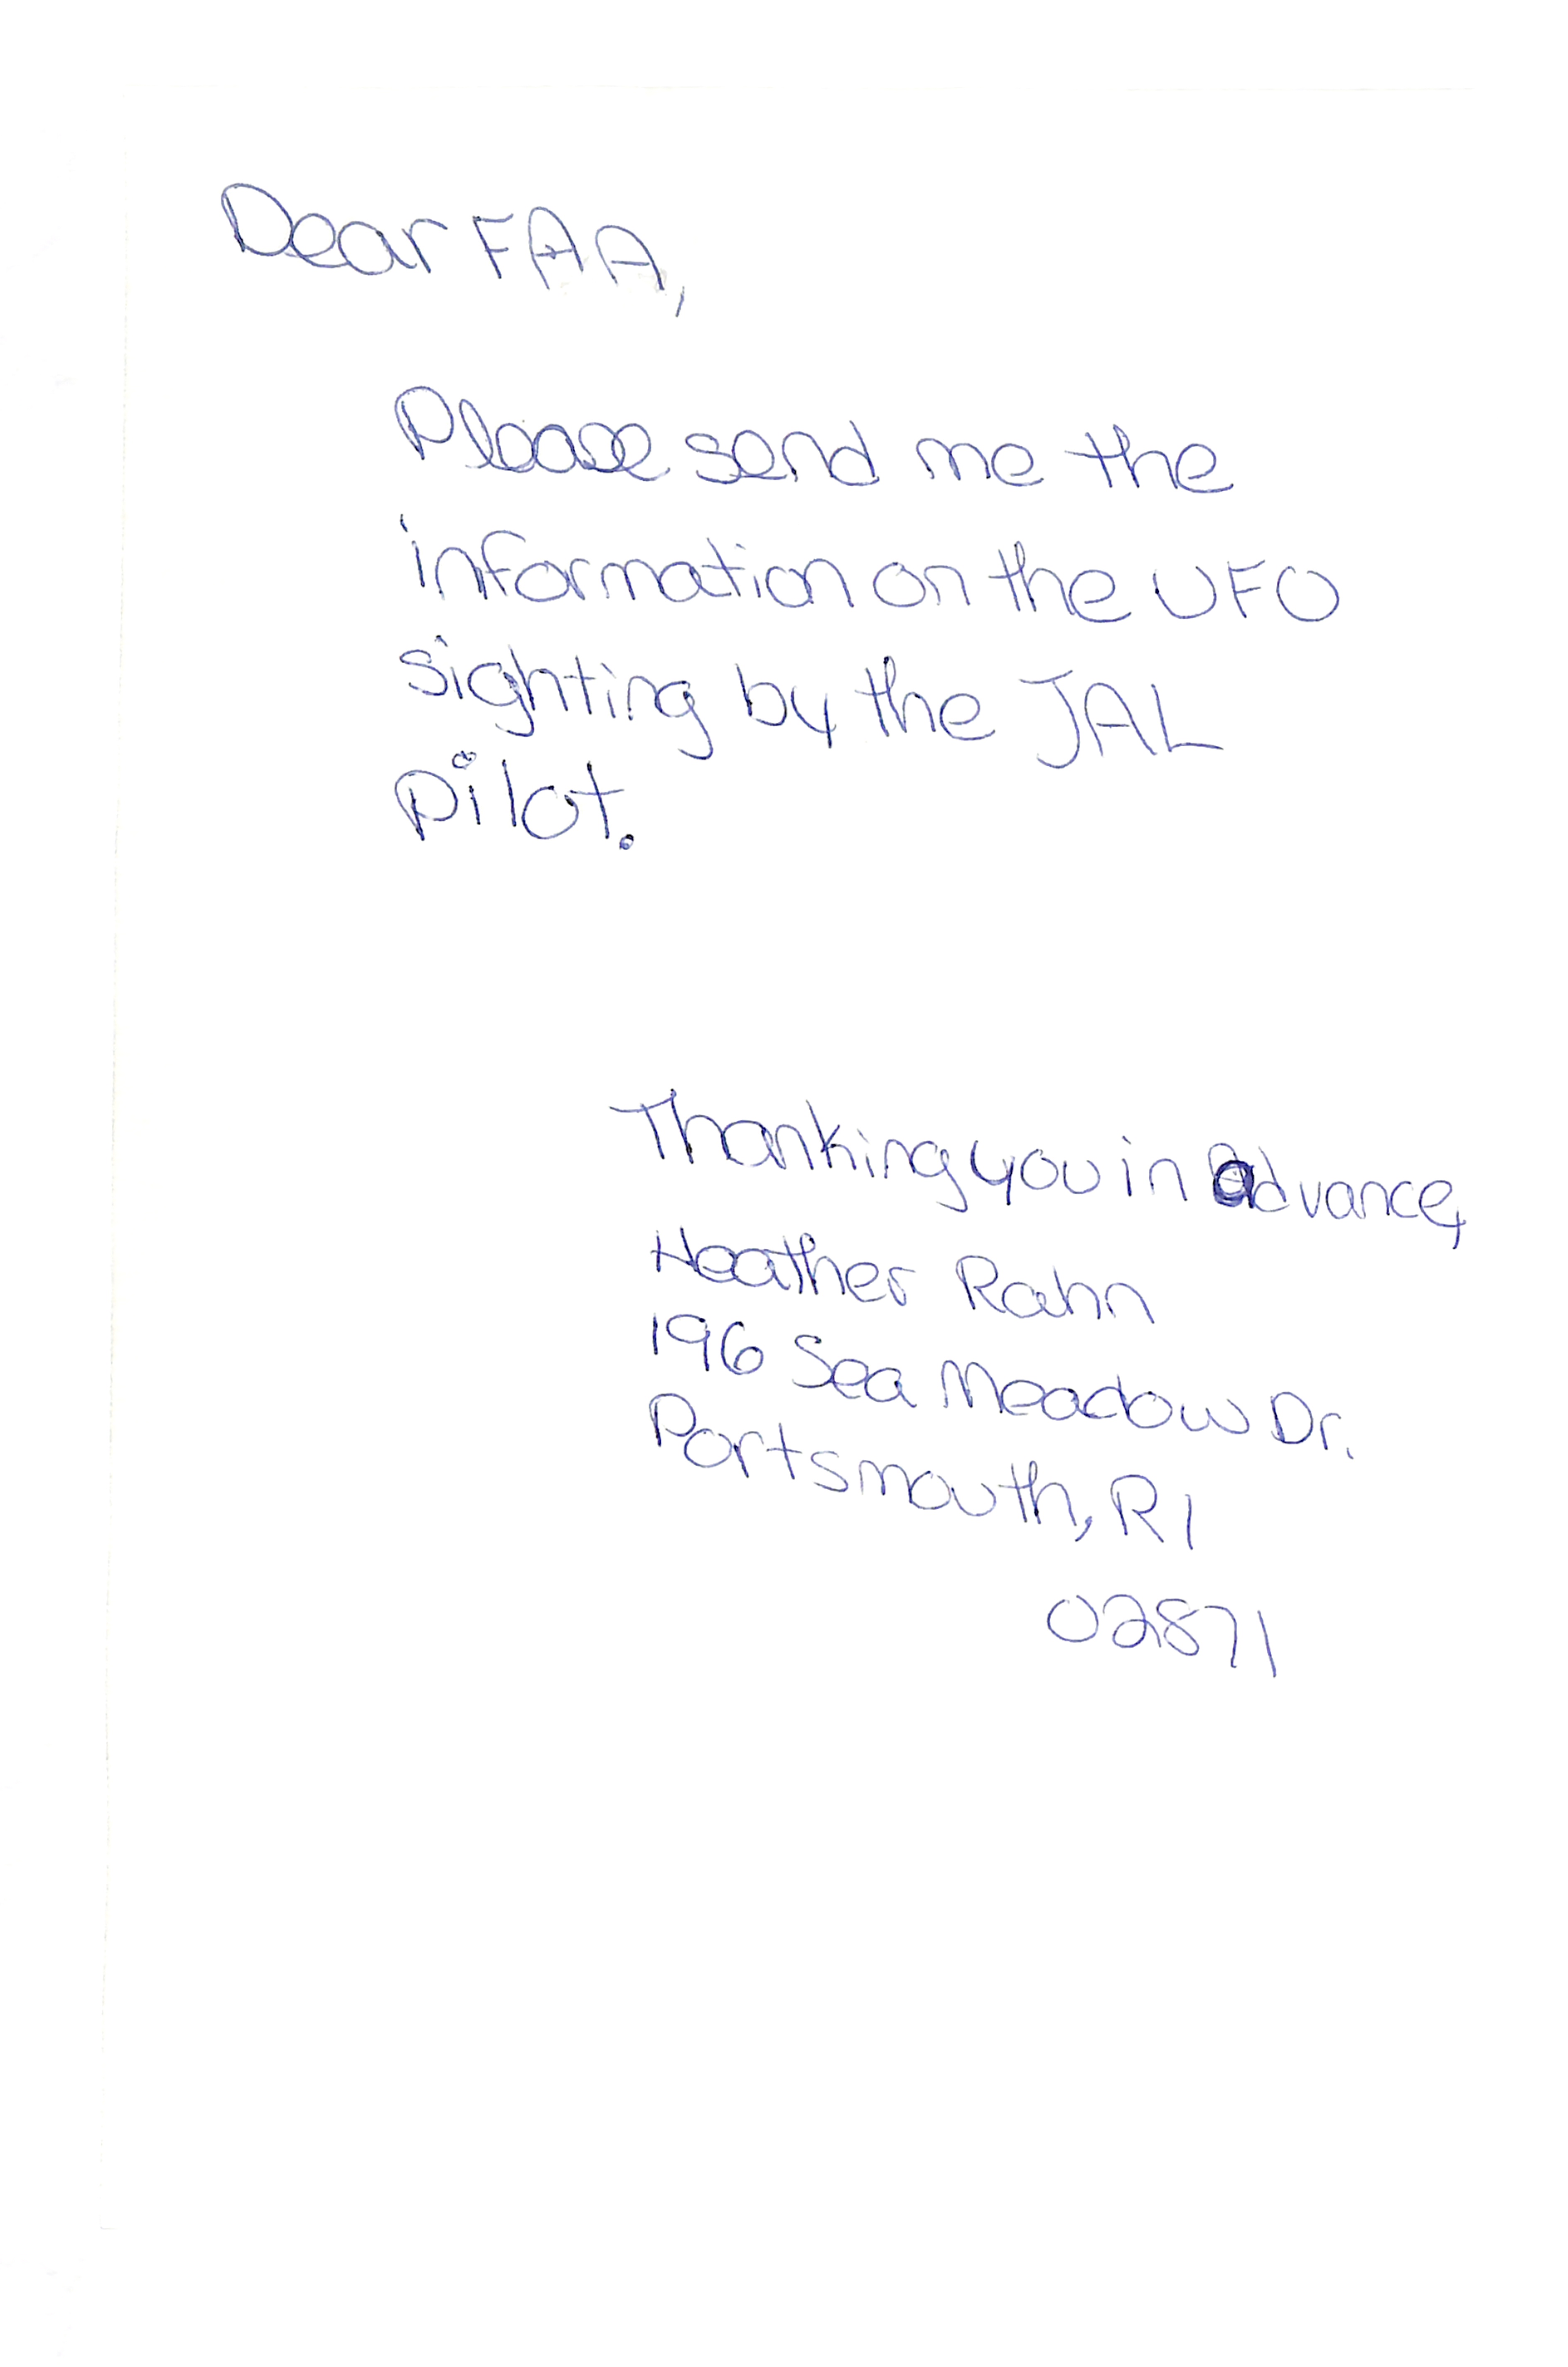 Dear FAA,
Please send me the
information on the UFO
sighting by the JAL
pilot.
Thanking you in advance,
Heather Rahn
196 Sea Meadow Dr.
Portsmouth, RI
02871